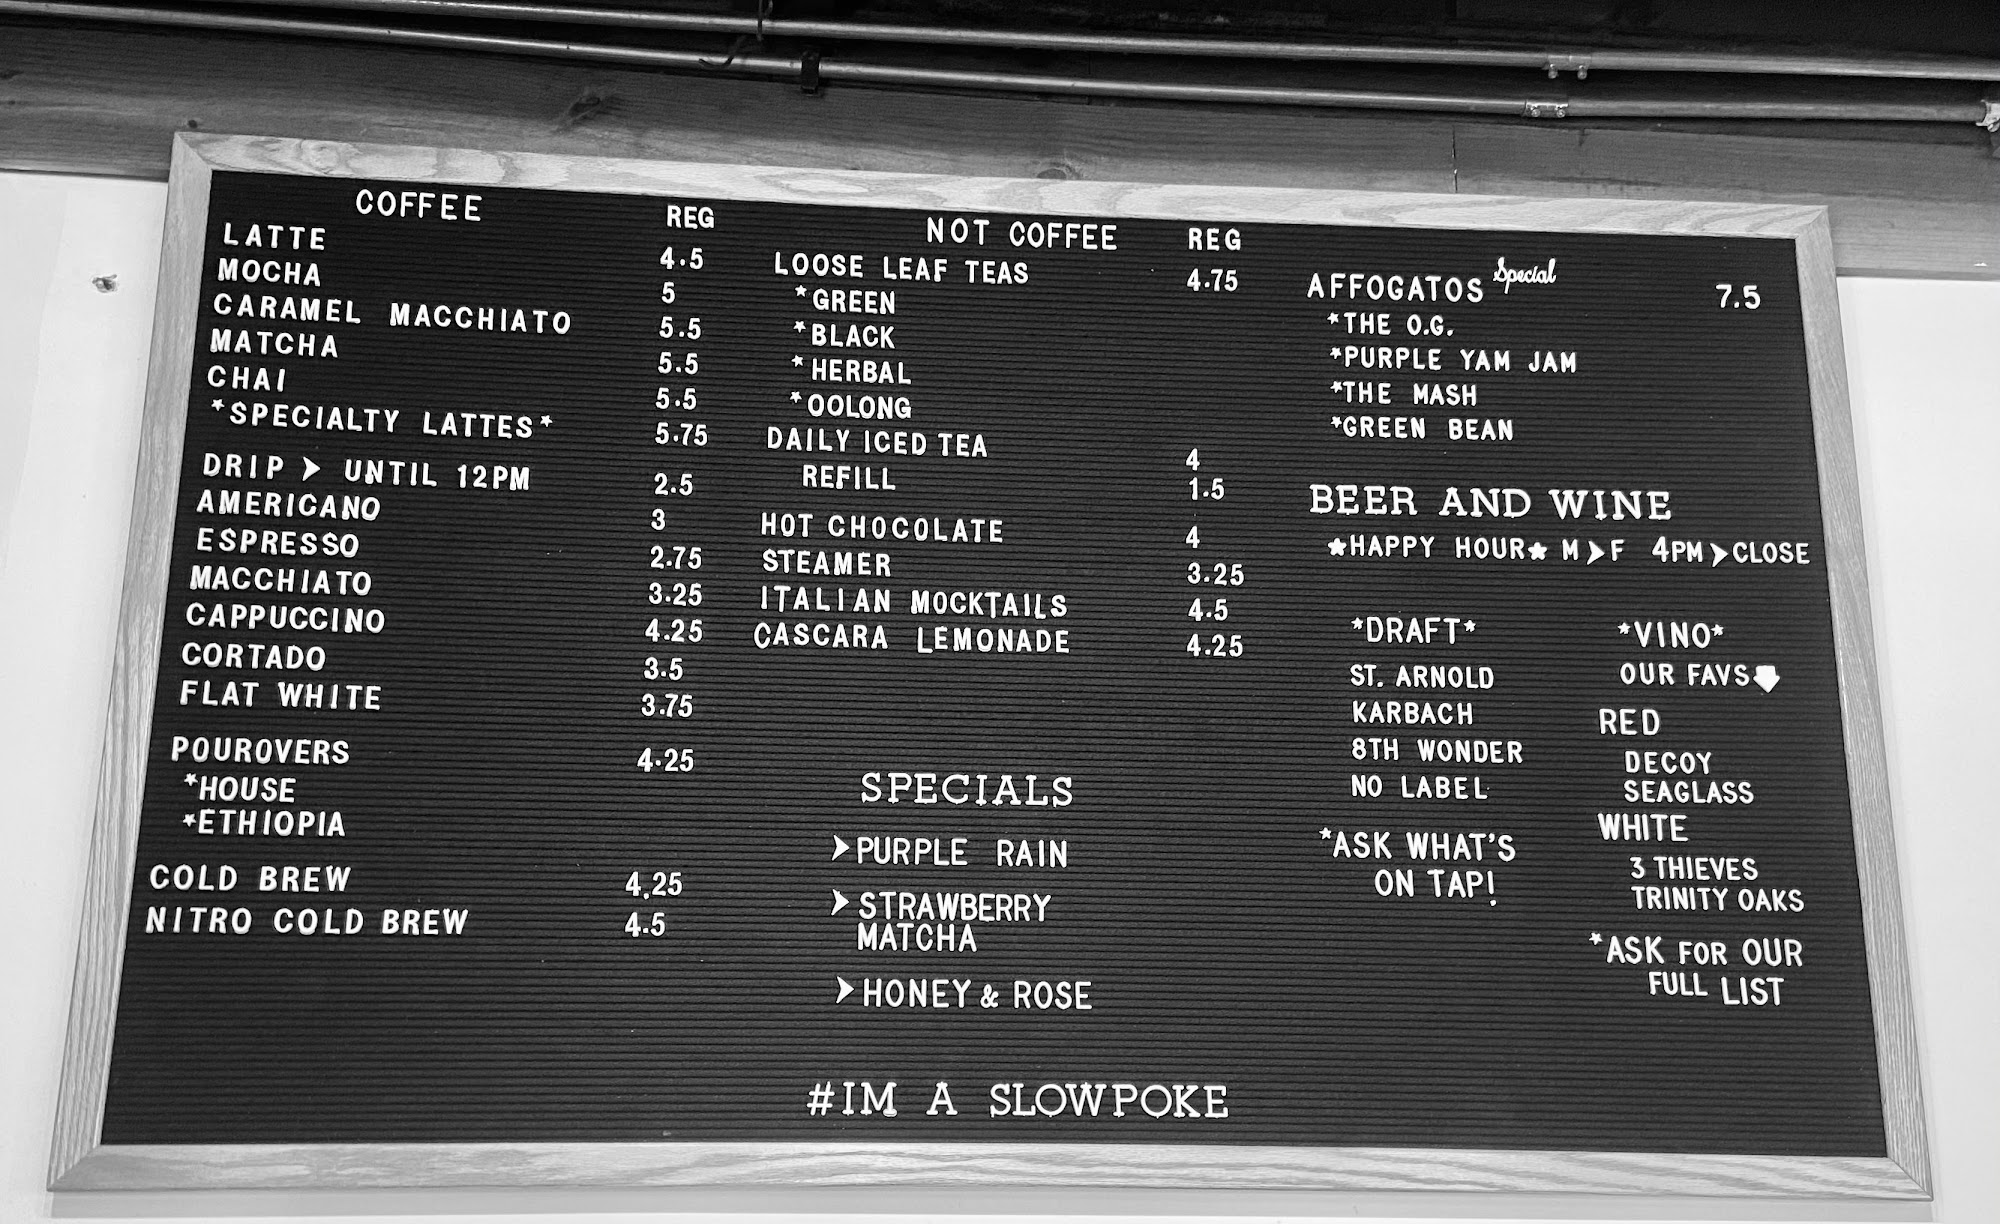 COFFEE REG
LATTE 4.5
MOCHA 5
CARAMEL MACCHIATO 5.5
MATCHA 5.5
CHAI 5.5
*SPECIALTY LATTES* 5.75
DRIP > UNTIL 12PM 2.5
AMERICANO 3
ESPRESSO 2.75
MACCHIATO 3.25
CAPPUCCINO 4.25
CORTADO 3.5
FLAT WHITE 3.75
POUROVERS 4.25
*HOUSE
*ETHIOPIA
COLD BREW 4.25
NITRO COLD BREW 4.5
NOT COFFEE REG
LOOSE LEAF TEAS 4.75
*GREEN
*BLACK
*HERBAL
*OOLONG
DAILY ICED TEA 4
REFILL 1.5
HOT CHOCOLATE 4
STEAMER 3.25
ITALIAN MOCKTAILS 4.5
CASCARA LEMONADE 4.25
SPECIALS
>PURPLE RAIN
>STRAWBERRY
MATCHA
>HONEY & ROSE
AFFOGATOS Special 7.5
*THE O.G.
*PURPLE YAM JAM
*THE MASH
*GREEN BEAN
BEER AND WINE
★HAPPY HOUR★ M>F 4PM>CLOSE
*DRAFT*
ST. ARNOLD
KARBACH
8TH WONDER
NO LABEL
*ASK WHAT'S
ON TAP!
*VINO*
OUR FAVS
RED
DECOY
SEAGLASS
WHITE
3 THIEVES
TRINITY OAKS
*ASK FOR OUR
FULL LIST
#IM A SLOWPOKE